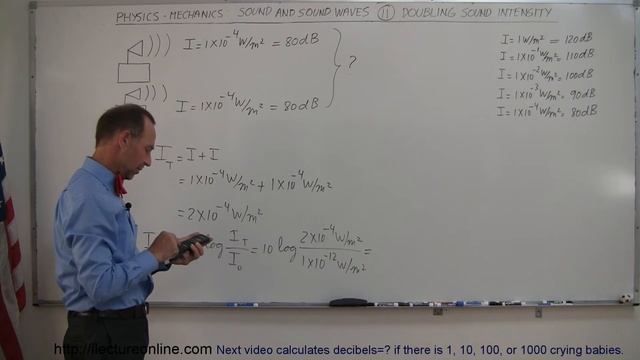 PHYSICS - MECHANICS: SOUND AND SOUND WAVES (11) DOUBLING SOUND INTENSITY
I = 1×10⁻⁴ W/m² = 80 dB
I = 1×10⁻⁴ W/m² = 80 dB
?
I = 1 W/m² = 120 dB
I = 1×10⁻¹ W/m² = 110 dB
I = 1×10⁻² W/m² = 100 dB
I = 1×10⁻³ W/m² = 90 dB
I = 1×10⁻⁴ W/m² = 80 dB
I_T = I + I
= 1×10⁻⁴ W/m² + 1×10⁻⁴ W/m²
= 2×10⁻⁴ W/m²
log I_T/I₀ = 10 log 2×10⁻⁴ W/m² / 1×10⁻¹² W/m² =
http://ilectureonline.com Next video calculates decibels=? if there is 1, 10, 100, or 1000 crying babies.